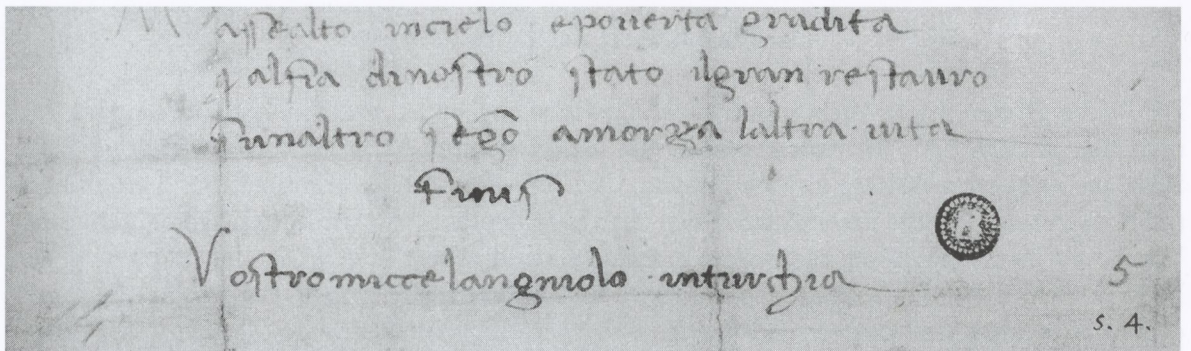 assealto incielo epouerta gradita
qualfia dinostro stato ilgran restauro
sunaltro segō amorza laltra uita
Finis
Vostro miccelangniolo inturchia
5
s. 4.